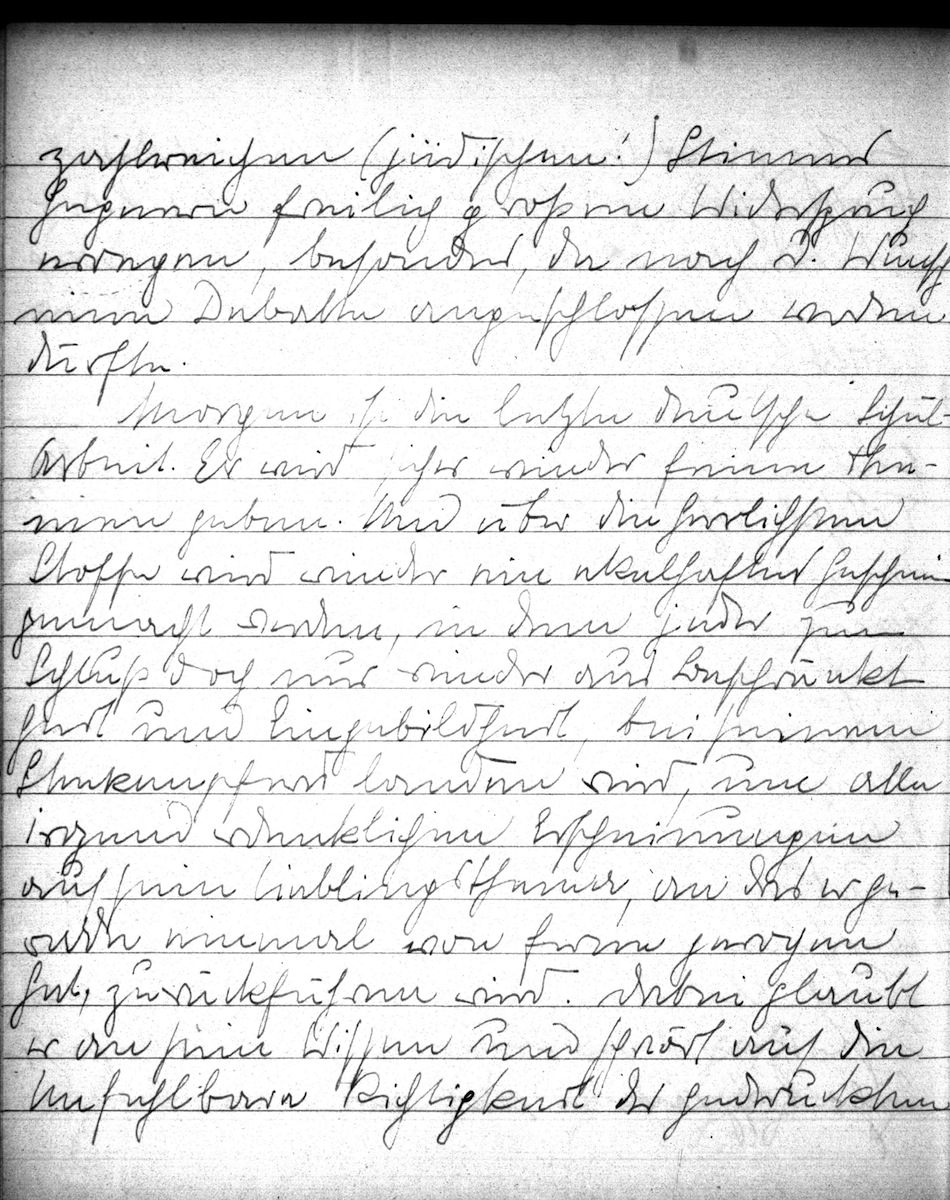 zahlreichen (jüdischen!) Stimmen
Gegnern freilich großen Widerspruch
erregen, besonders, da nach d. Wunsch
eine Debatte angeschlossen werden
dürfte.
Morgen ist die letzte deutsche Schul
Arbeit. Es wird sicher wieder feine The-
men geben. Und über die herrlichsten
Stoffe wird wieder ein ekelhaftes
gemacht werden, in dem jeder zum
Schluß doch nur wieder aus Beschränkt
heit und Eingebildheit, bei seinem
Steckenpferd landen wird, und alle
irgend erdenklichen Erscheinungen
auf sein Lieblingsthema, an das er ge-
rade einmal von ferne gerochen
hat, zurückführen wird. Dabei glaubt
er an sein Wissen und schwört auf die
Unfehlbare Richtigkeit der gedruckten